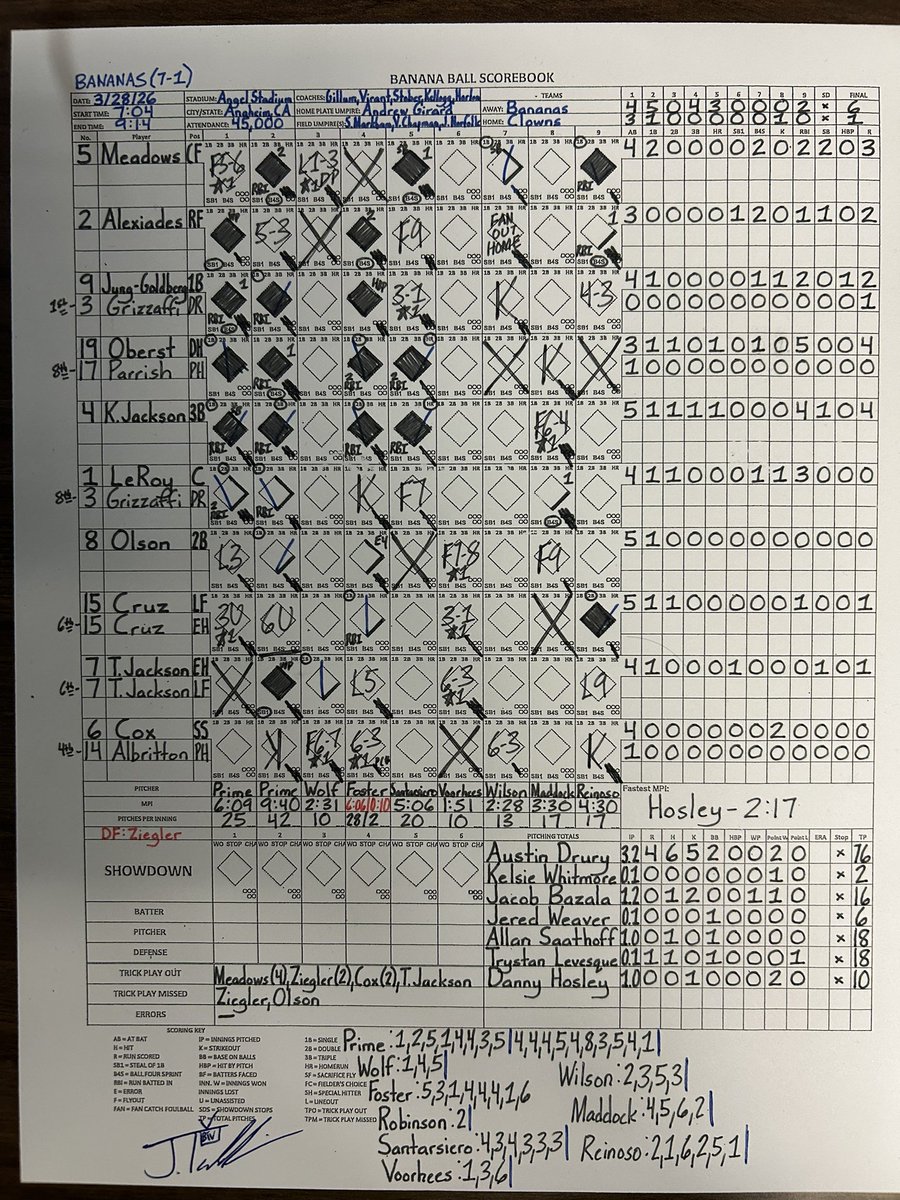 BANANAS (7-1)
BANANA BALL SCOREBOOK
DATE: 3/28/26 STADIUM: Angel Stadium COACHES: Gillum, Virant, Stober, Kellogg, Harlow - TEAMS 1 2 3 4 5 6 7 8 9 SD FINAL
START TIME: 7:04 CITY/STATE: Anaheim, CA HOME PLATE UMPIRE: Andrew Girard AWAY: Bananas 4 5 0 4 3 0 0 0 2 x 6
END TIME: 9:14 ATTENDANCE: 45,000 FIELD UMPIRE(S): HOME: Clowns 3 1 0 0 0 0 0 1 0 x 1
No. Player Pos 1 2 3 4 5 6 7 8 9 AB 1B 2B 3B HR SB1 B4S K RBI SB BB HBP R
5 Meadows CF F5-6 *1 L1-3 DP 4 2 0 0 0 0 2 0 2 2 0 3
2 Alexiades RF 5-3 F9 FAN OUT HOME 3 0 0 0 0 1 2 0 1 1 0 2
9 Jung-Goldberg 1B HBP 3-1 *1 K 4-3 4 1 0 0 0 0 1 1 2 0 1 2
1st- 3 Grizzaffi DR 0 0 0 0 0 0 0 0 0 0 0 1
19 Oberst DH 3 1 1 0 1 0 1 0 5 0 0 4
8th- 17 Parrish PH K 1 0 0 0 0 0 0 0 0 0 0 0
4 K.Jackson 3B F6-4 *1 5 1 1 1 1 0 0 0 4 1 0 4
1 LeRoy C K F7 4 1 1 0 0 0 1 1 3 0 0 0
8th- 3 Grizzaffi DR
8 Olson 2B L3 E4 F9-8 *1 F9 5 1 0 0 0 0 0 0 0 0 0 0
15 Cruz LF 3U *1 6U 3-1 *1 5 1 1 0 0 0 0 0 1 0 0 1
6th- 15 Cruz EH
7 T.Jackson EH L5 6-3 *1 L9 4 1 0 0 0 1 0 0 0 1 0 1
6th- 7 T.Jackson LF
6 Cox SS K F6-7 *1 6-3 *1 6-3 K 4 0 0 0 0 0 0 2 0 0 0 0
4th- 14 Albritton PH 1 0 0 0 0 0 0 0 0 0 0 0
PITCHER Prime Prime Wolf Foster Santarsiero Voorhees Wilson Maddock Reinoso Fastest MPI:
MPI 6:09 9:40 2:31 6:06/0:10 5:06 1:51 2:28 3:30 4:30 Hosley - 2:17
PITCHES PER INNING 25 42 10 28/2 20 10 13 17 17
DF: Ziegler 1 2 3 4 5 6 PITCHING TOTALS IP R H K BB HBP WP Point W Point L ERA Stop TP
SHOWDOWN
Austin Drury 3.2 4 6 5 2 0 0 2 0 x 76
Kelsie Whitmore 0.1 0 0 0 0 0 0 1 0 x 2
Jacob Bazala 1.2 0 1 2 0 0 1 1 0 x 16
BATTER Jered Weaver 0.1 0 0 0 1 0 0 0 0 x 6
PITCHER Allan Saathoff 1.0 0 1 0 1 0 0 0 0 x 18
DEFENSE Trystan Levesque 0.1 1 1 0 1 0 0 0 1 x 18
TRICK PLAY OUT Meadows(4), Ziegler(2), Cox(2), T.Jackson Danny Hosley 1.0 0 0 1 0 0 0 2 0 x 10
TRICK PLAY MISSED Ziegler, Olson
ERRORS —
SCORING KEY
AB = AT BAT IP = INNINGS PITCHED 1B = SINGLE
H = HIT K = STRIKEOUT 2B = DOUBLE
R = RUN SCORED BB = BASE ON BALLS 3B = TRIPLE
SB1 = STEAL OF 1B HBP = HIT BY PITCH HR = HOMERUN
B4S = BALL FOUR SPRINT BF = BATTERS FACED SF = SACRIFICE FLY
RBI = RUN BATTED IN INN. W = INNINGS WON FC = FIELDER'S CHOICE
E = ERROR INNINGS LOST SH = SPECIAL HITTER
F = FLYOUT U = UNASSISTED L = LINEOUT
FAN = FAN CATCH FOULBALL SDS = SHOWDOWN STOPS TPO = TRICK PLAY OUT
TP = TOTAL PITCHES TPM = TRICK PLAY MISSED
Prime: 1,2,5,1,4,4,3,5|4,4,4,5,4,8,3,5,4,1|
Wolf: 1,4,5|
Wilson: 2,3,5,3|
Foster: 5,3,1,4,4,4,1,6
Robinson: 2|
Maddock: 4,5,6,2|
Santarsiero: 4,3,4,3,3,3|
Reinoso: 2,1,6,2,5,1|
Voorhees: 1,3,6|